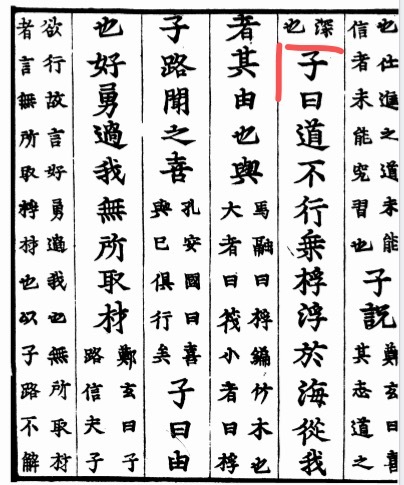 也仕進之道未能
信者未能究習也
子説
鄭玄曰善
其志道之
深
也
子曰道不行乗桴浮於海從我
者其由也與
馬融曰桴編竹木也
大者曰筏小者曰桴
子路聞之喜
孔安國曰喜
與已俱行矣
子曰由
也好勇過我無所取材
鄭玄曰子
路信夫子
欲行故言好勇過我也無所取材
者言無所取桴材也以子路不解